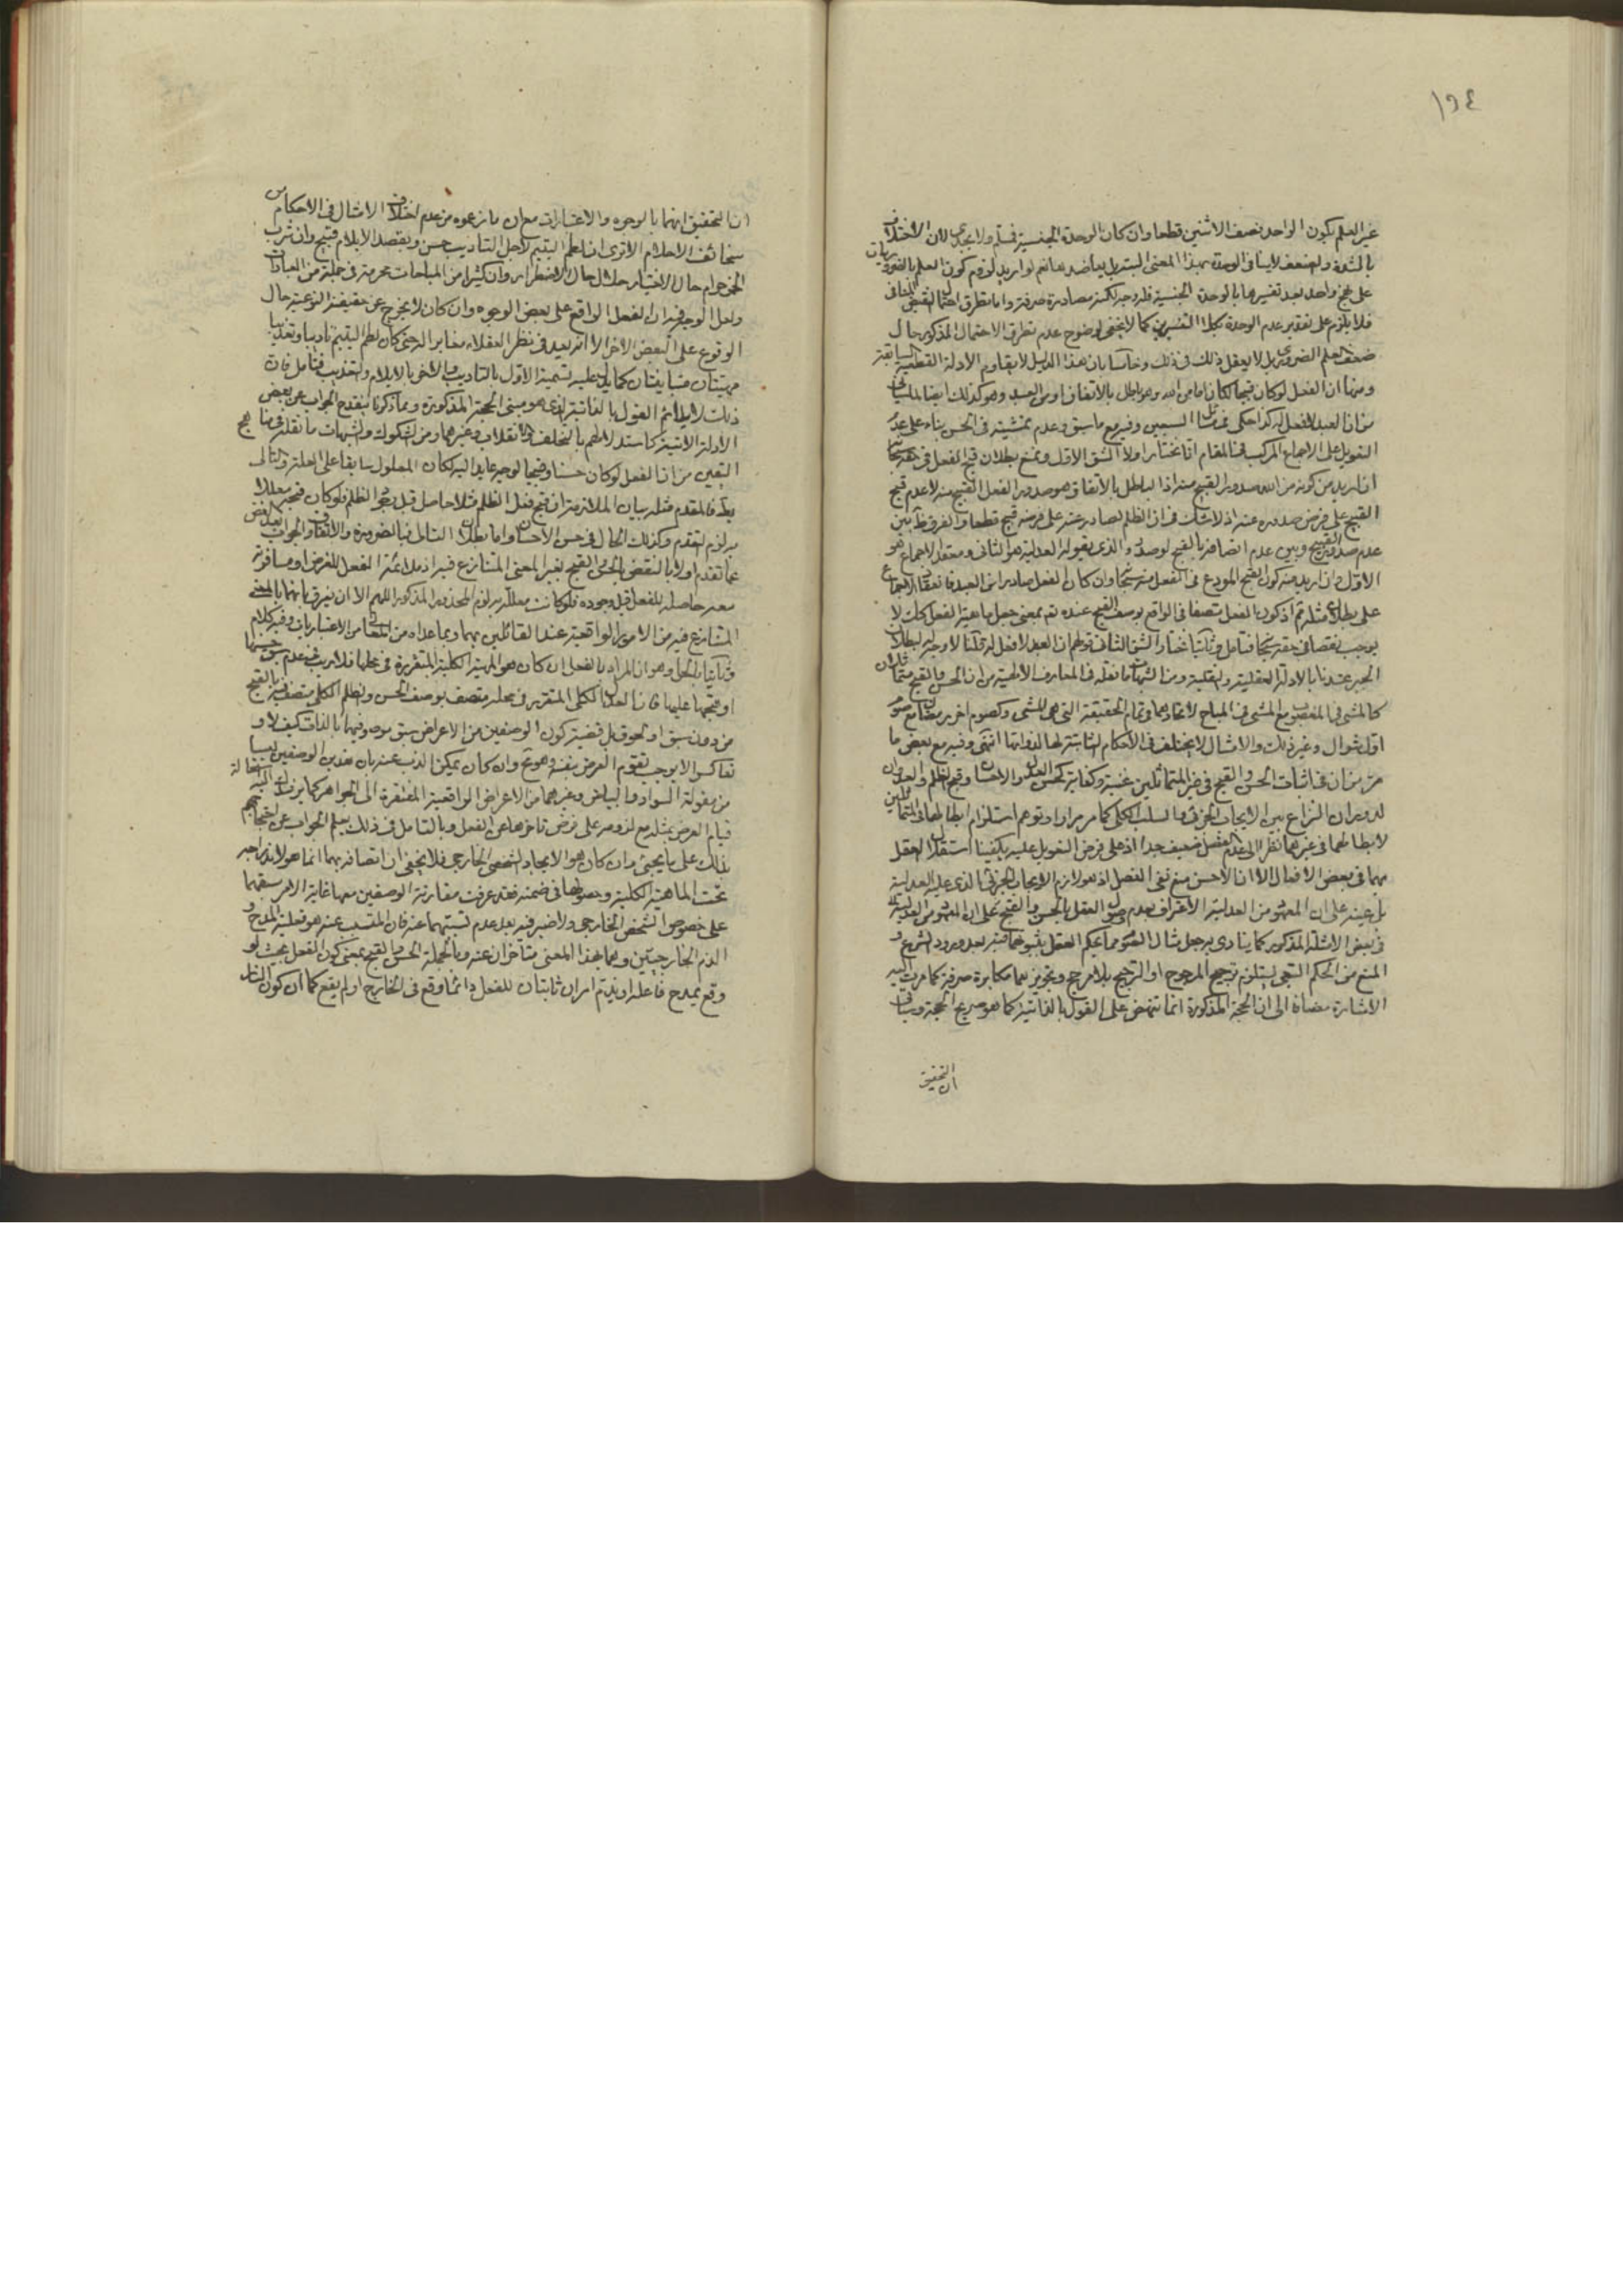 ١٩٤
غير العلم بكون الواحد نصف الاثنين قطعا وان كان الوحدة الجنسية فمسلم ولا يجدى لان الاختلاف
بالشدة والضعف لا ينافى الوحدة بهذا المعنى لو اريد لزوم كون العلم بالضروريات
على نهج واحد بعد تفسيرها بالوحدة الجنسية فلا وجه له لكنه مصادرة صرفة واما تطرق احتمال النقيض
فلا يلزم على تقدير عدم الوحدة بكلا التفسيرين كما لا يخفى لوضوح عدم تطرق الاحتمال المذكور حال
ضعف العلم الضرورى بل لا يعقل ذلك فى ذلك وخامسا بان هذا الدليل لا يقاوم الادلة القطعية السابقة
ومنها ان الفعل لو كان قبيحا لكان اما من الله وهو باطل بالاتفاق او من العبد وهو كذلك ايضا لما سياتى
من ان العبد لا فعل له كذا حكى وفيه مع ما سبق وعدم تمشيته فى الحسن بناء على عدم
التعويل على الاجماع المركب فى المقام انا نختار اولا الشق الاول ونمنع بطلان قبح الفعل فى حقه سبحانه
ان اريد من كونه من الله صدور القبيح منه اذ الباطل بالاتفاق هو صدور الفعل القبيح منه لا عدم قبح
القبيح على فرض صدوره عنه اذ لا شك فى ان الظلم الصادر عنه على فرضه قبيح قطعا والفرق ظ بين
عدم صدور القبيح وبين عدم اتصافه بالقبح لو صدر والذى يقوله العدلية هو الثانى ومعقد الاجماع هو
الاول وان اريد منه كون القبح المودع فى الفعل منه سبحانه وان كان الفعل صادرا من العبد فانعقاد الاجماع
على بطلان مثله ثم اذ كون الفعل متصفا فى الواقع بوصف القبح عنده تعالى بمعنى جعل ماهية الفعل كك لا
يوجب نقصا فى حقه سبحانه فتامل وثانيا نختار الشق الثانى قولهم ان العبد لا فعل له قلنا لا وجه له لبطلان
الجبر عندنا بالادلة العقلية والنقلية ومن الشبهات ما نقله فى المعارف الالهية من ان الحسن والقبيح متماثلان
كالمشى فى المغصوب مع المشى فى المباح لاتحادهما فى تمام الحقيقة التى هى المشى وكصوم اخر رمضان مع صوم
اول شوال وغير ذلك والامثال لا يختلف فى الاحكام الثابتة لها لذواتها انتهى وفيه مع بعض ما
مر من ان فى اثبات الحسن والقبح فى غير المتماثلين غنية وكفاية كحسن العدل والاحسان وقبح الظلم والعدوان
لدوران النزاع بين الايجاب الجزئى والسلب الكلى كما مر مرارا وتوهم استلزام ابطالها فى المتماثلين
لابطالهما فى غيرهما نظرا الى عدم الفصل ضعيف جدا اذ على فرض التعويل عليه يكفينا استقلال العقل
بهما فى بعض الافعال الا ان الاحسن منع نفى الفصل اذ هو لازم الايجاب الجزئى الذى عليه العدلية
بل عينه على ان المعهود من العدلية الاعتراف بعدم وصول العقل بالحسن والقبح على ان المعهود من العدلية
فى بعض الامثلة المذكور كما ينادى به جعل مثال الصوم مما يحكم العقل بثبوتهما فيه بعد ورود الشرع و
المنع من الحكم القبحى يستلزم ترجيح المرجوح او الترجيح بلا مرجح وتجويزهما مكابرة صرفة كما مرت اليه
الاشارة مضافا الى ان الحجة المذكورة انما تنهض على القول بالذاتية كما هو صريح الحجة وسياتى
ان التحقيق
ان التحقيق انهما بالوجوه والاعتبارات مع ان ما زعموه من عدم اختلاف الامثال فى الاحكام من
سخائف الاحلام الا ترى ان لطم اليتيم لاجل التاديب حسن وبقصد الايلام قبيح وان شرب
الخمر حرام حال الاختيار حلال حال الاضطرار وان كثيرا من المباحات محرمة فى جملة من العبادات
ولعل الوجه فيه ان الفعل الواقع على بعض الوجوه وان كان لا يخرج عن حقيقته النوعية حال
الوقوع على البعض الاخر الا انه يعد فى نظر العقلاء مغايرا له حتى كان لطم اليتيم تاديبا وتعذيبا
مهيتان متباينتان كما يدل عليه تسمية الاول بالتاديب والاخر بالايلام والتعذيب فتامل فان
ذلك لا يلائم القول بالذاتية الذى هو مبنى الحجة المذكورة ومما ذكرنا ينقدح الجواب عن بعض
الادلة الاتية كاستدلالهم بالتخلف والانقلاب وغيرهما ومن الشكوك والشبهات ما نقله فى مناهج
اليقين من ان الفعل لو كان حسنا وقبيحا لوجه عايد اليه لكان المعلول سابقا على العلة والتالى
بط فالمقدم مثله بيان الملازمة ان قبح فعل الظلم مثلا حاصل قبل وجود الظلم فلو كان قبحه معللا
به لزم التقدم وكذلك الحال فى حسن الاحسان واما بطلان التالى فبالضرورة والاتفاق والجواب بعد الغض
عما تقدم اولا بالنقض بالحسن والقبح بغير المعنى المتنازع فيه اذ ملائمة الفعل للغرض او منافرته
معه حاصلة للفعل قبل وجوده فلو كانت معللة به لزم المحذور المذكور اللهم الا ان يفرق بانهما بالمعنى
المتنازع فيه من الامور الواقعية عند القائلين بهما وبما عداه من المعانى من الاعتباريات وفيه كلام
وثانيا بالحل وهو ان المراد بالفعل ان كان هو المهية الكلية المتقررة فى محلها فلا ريب فى عدم سبق حسنها
او قبحها عليها فان العدل الكلى المتقرر فى محله متصف بوصف الحسن والظلم الكلى متصف بالقبح
من دون سبق او لحوق بل قضية كون الوصفين من الاعراض سبق موصوفيهما بالذات كيف لا و
تعاكس الامر يوجب تقوم العرض بنفسه وهو مح وان كان يمكن الذب عنه بان هذين الوصفين ليسا
من مقولة السواد والبياض وغيرهما من الاعراض الواقعية المفتقرة الى الجواهر كما يرشد اليه استحالة
قيام العرض بمثله مع لزومه على فرض تاخرهما عن الفعل وبالتامل فى ذلك يعلم الجواب عن احتجاجهم
بذلك على ما يجئ وان كان هو الايجاد الشخصى الخارجى فلا يخفى ان اتصافه بهما انما هو لاندراجه
تحت الماهية الكلية وحصولها فى ضمنه فقد عرفت مقارنة الوصفين معها غاية الامر سبقهما
على خصوص الشخص الخارجى ولا ضير فيه بعد عدم تسببهما عنه فان المسبب عنه هو فعلية المدح و
الذم الخارجيين وهما بهذا المعنى متاخران عنه وبالجملة الحسن والقبح بمعنى كون الفعل بحيث لو
وقع يمدح فاعله او يذم امران ثابتان للفعل دائما وقع فى الخارج او لم يقع كما ان كون النار